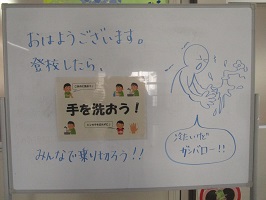 おはようございます。
登校したら、
手を洗おう！
みんなで乗り切ろう！！
冷たいけど
ガンバロー！！